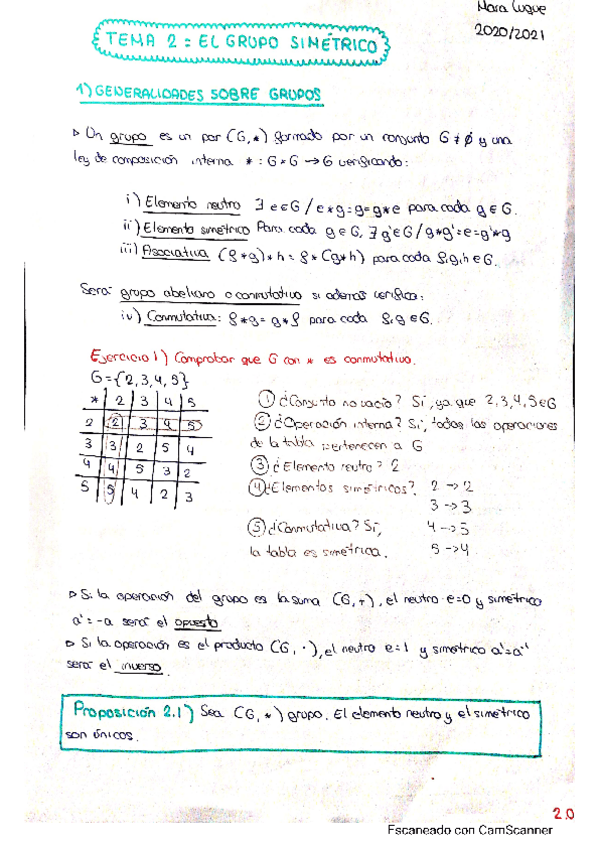 Mara Luque
2020/2021
TEMA 2 : EL GRUPO SIMÉTRICO
1) GENERALIDADES SOBRE GRUPOS
▹ Un grupo es un par (G,*) formado por un conjunto G ≠ ∅ y una
ley de composición interna * : G × G → G verificando:
i) Elemento neutro ∃ e∈G / e*g = g = g*e para cada g∈G.
ii) Elemento simétrico Para cada g∈G, ∃ g'∈G / g*g' = e = g'*g
iii) Asociativa (f*g)*h = f*(g*h) para cada f,g,h∈G.
Será grupo abeliano o conmutativo si además verifica:
iv) Conmutativa: f*g = g*f para cada f,g∈G.
Ejercicio 1) Comprobar que G con * es conmutativo.
G={2,3,4,5}
* 2 3 4 5
2 2 3 4 5
3 3 2 5 4
4 4 5 3 2
5 5 4 2 3
① ¿Conjunto no vacío? Sí, ya que 2,3,4,5∈G
② ¿Operación interna? Sí, todas las operaciones
de la tabla pertenecen a G
③ ¿Elemento neutro? 2
④ ¿Elementos simétricos? 2 → 2
3 → 3
⑤ ¿Conmutativa? Sí, 4 → 5
la tabla es simétrica. 5 → 4
▹ Si la operación del grupo es la suma (G,+), el neutro e=0 y simétrico
a' = -a será el opuesto
▹ Si la operación es el producto (G, ·), el neutro e=1 y simétrico a'=a⁻¹
será el inverso.
Proposición 2.1) Sea (G,*) grupo. El elemento neutro y el simétrico
son únicos.
2.0
Escaneado con CamScanner